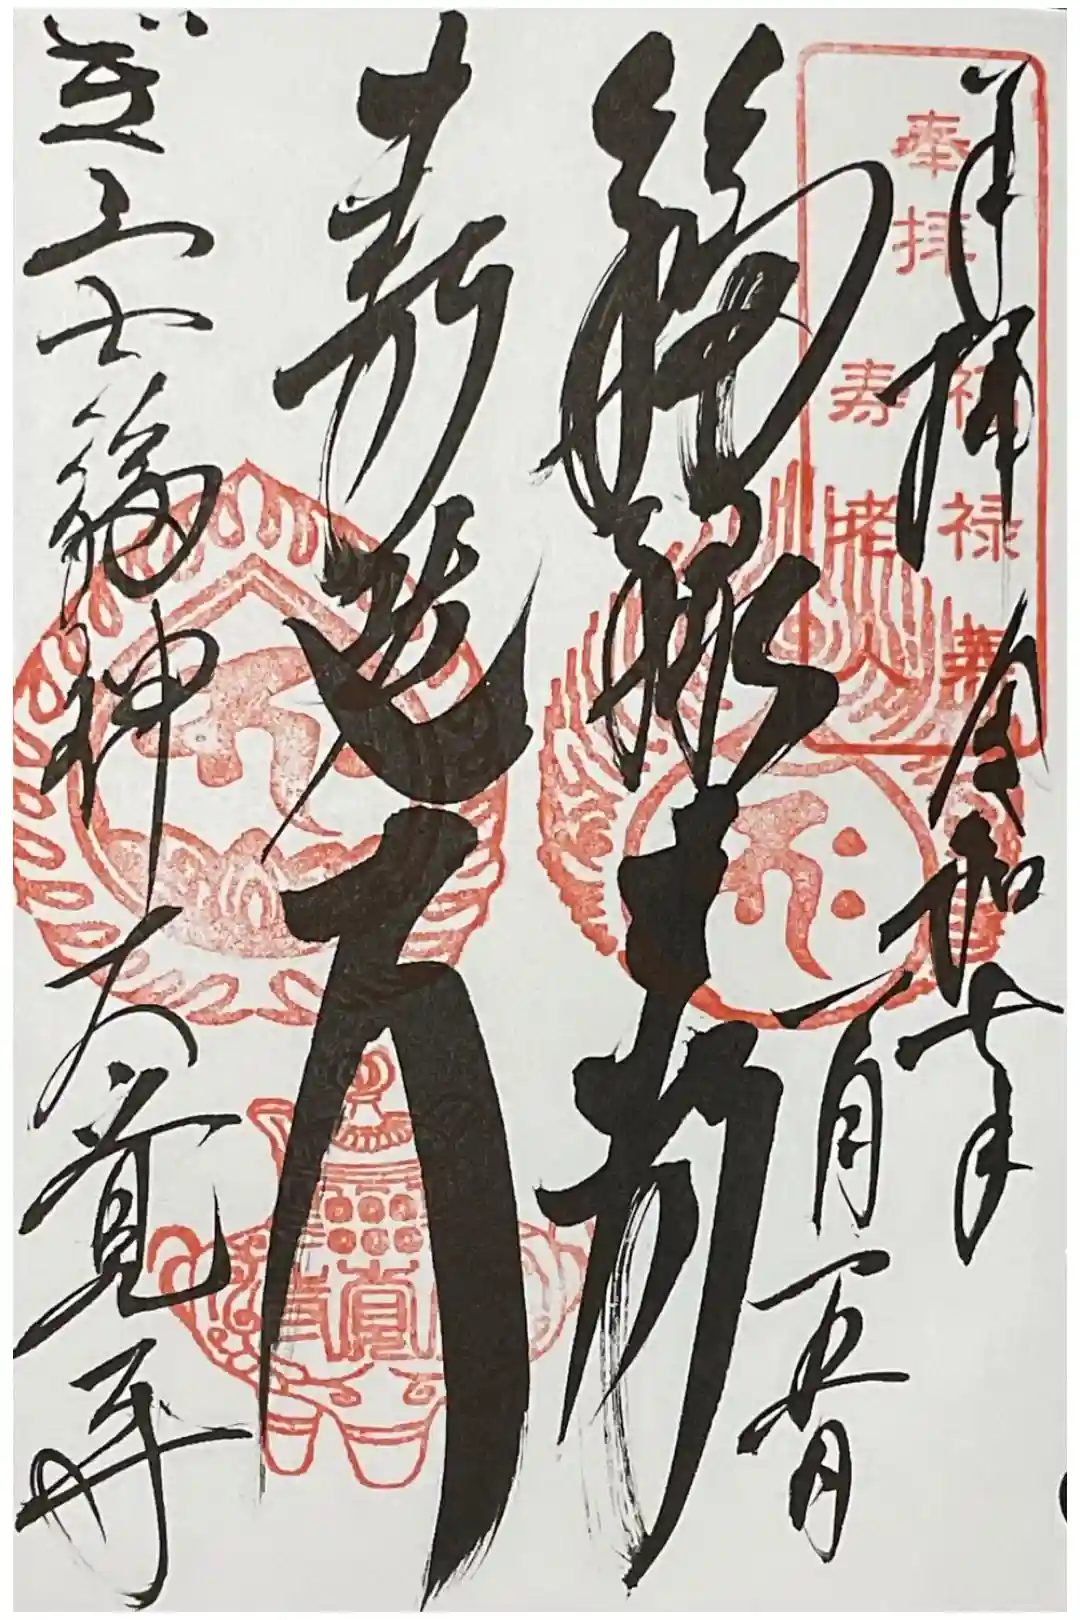 奉拝 令和七年
一月五日
奉拝
福禄寿
寿老人
福禄寿
寿老人
山七福神 大覚寺